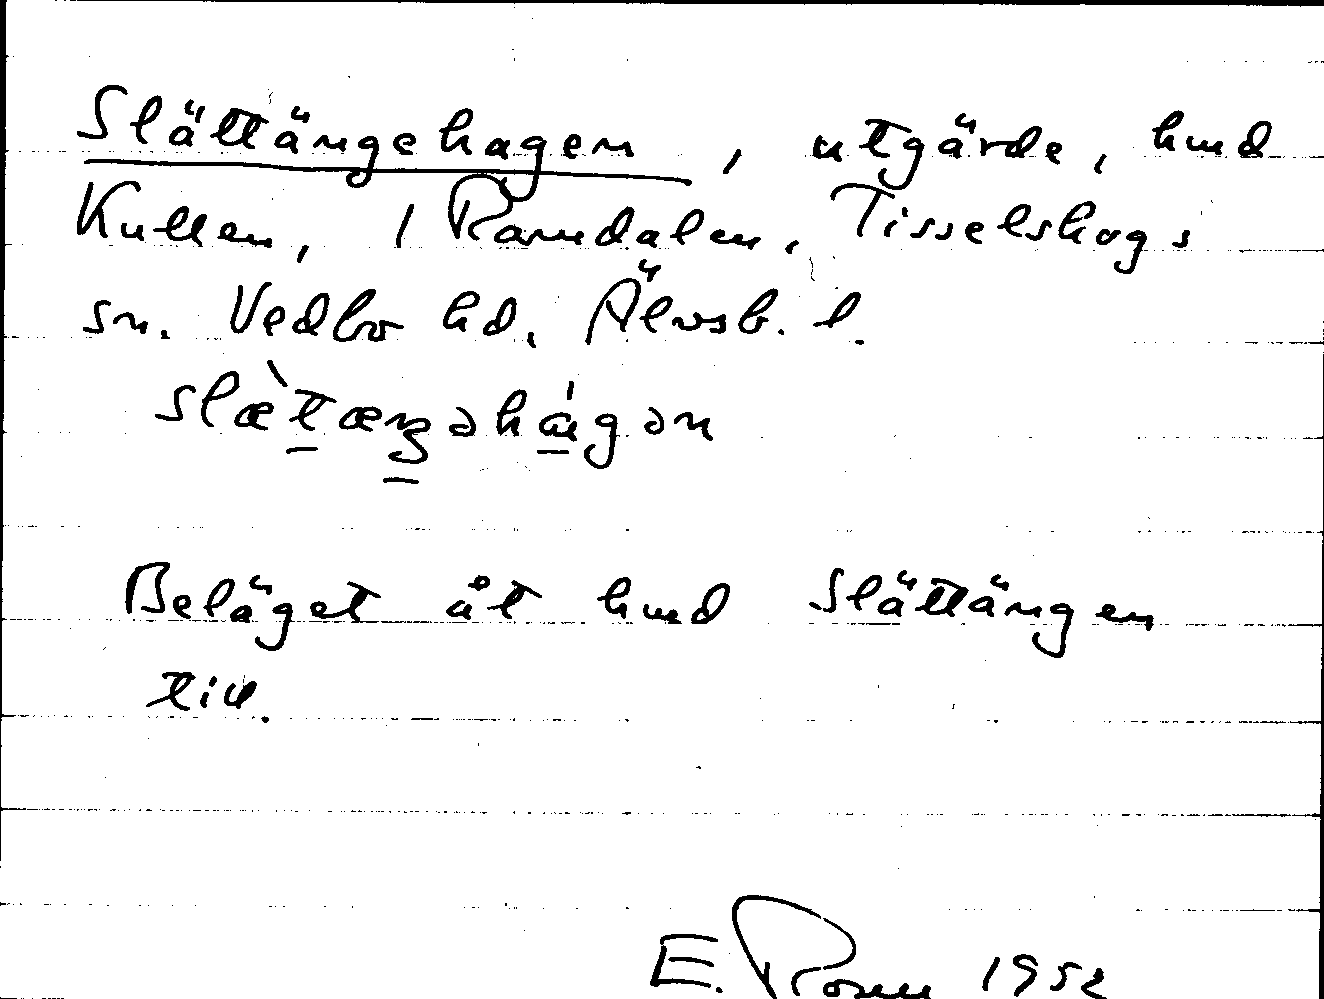 Slättängehagen, utgärde, hmd
Kullen, 1 Ramdalen, Tisselskogs
sn. Vedbo hd. Älvsb. l.
slæ̀tæŋəhágən
Beläget åt hmd Slättängen
till.
E. 1952